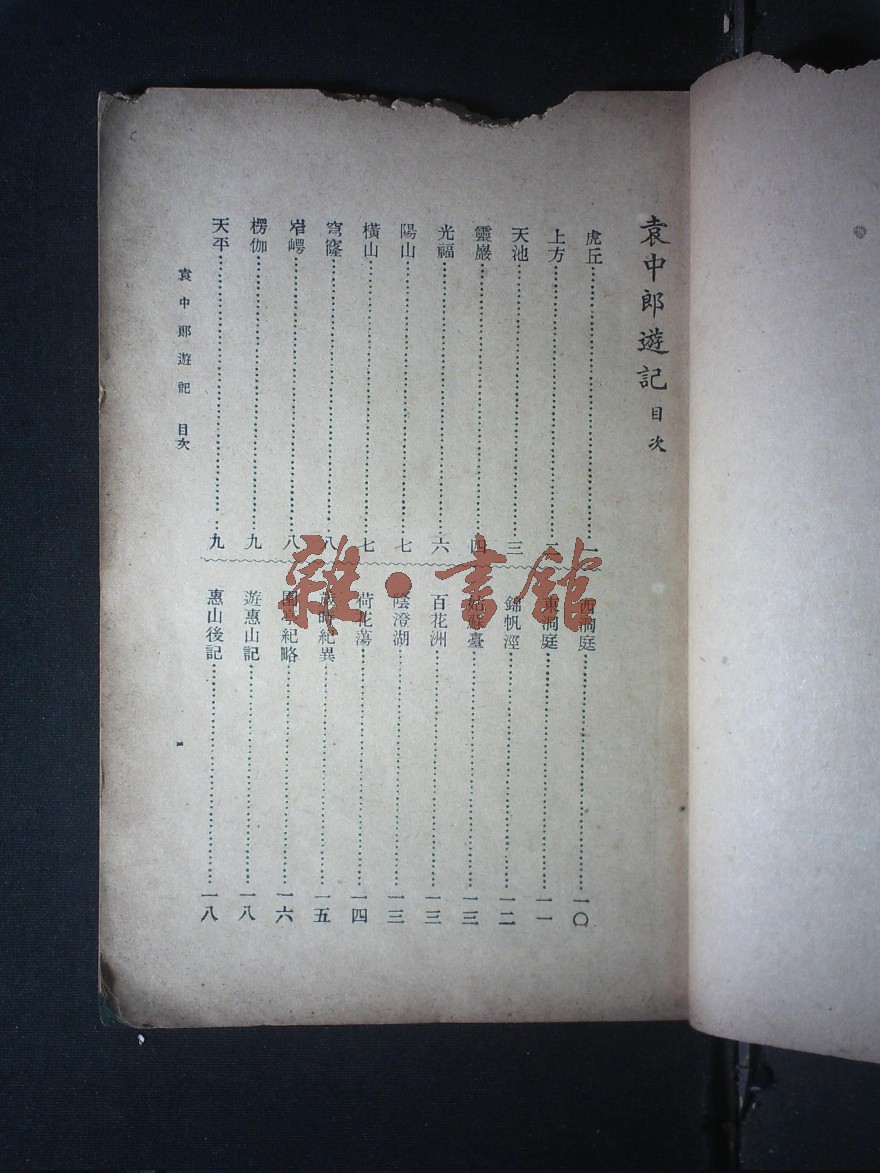 袁中郎遊記 目次
虎丘……一
上方……二
天池……三
靈巖……四
光福……六
陽山……七
橫山……七
穹窿……八
岝崿……八
楞伽……九
天平……九
西洞庭……一〇
東洞庭……一一
錦帆涇……一二
姑蘇臺……一三
百花洲……一三
陰澄湖……一三
荷花蕩……一四
歲時紀異……一五
園亭紀略……一六
遊惠山記……一八
惠山後記……一八
袁中郎遊記 目次
雜·書館